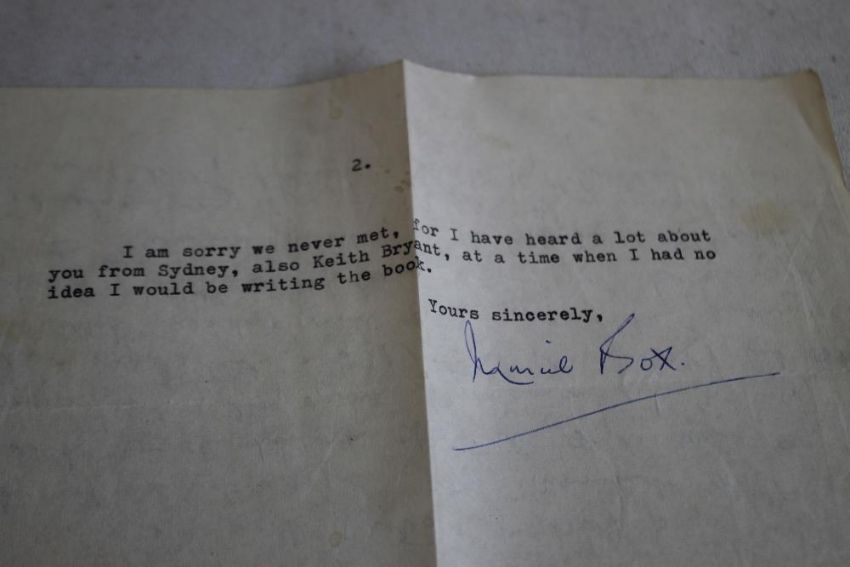 2.
I am sorry we never met, for I have heard a lot about
you from Sydney, also Keith Bryant, at a time when I had no
idea I would be writing the book.
Yours sincerely,
Muriel Box.